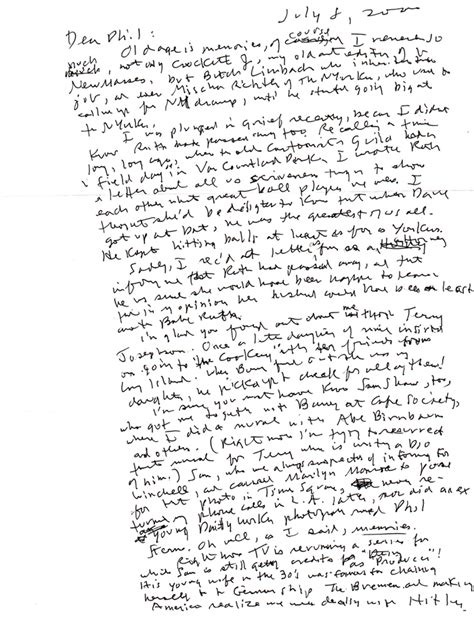 July 8, 200
Dear Phil:
Old age is memories, of course I remember so
much, not only Crockett J, my old art editor of
New Masses, but Butch Limbach who inherited
job, or even Mischa Richter of The N Yorker, who used to
call me for NM dramp, until he started going big at
N Yorker.
I was plunged in grief recently, because I didn't
know Ruth had passed away too. Recalling a time
long, long ago, when the old Cartoonists Guild had
field day in Van Cortlandt Park I wrote Ruth
a letter about all us scriveners trying to show
each other what great ball players we were. I
thought she'd be delighted to know that when Dave
got up at bat, he was the greatest of us all.
He kept hitting balls at least as far as Yonkers.
Sadly, I rec'd a letter from
informing me that Ruth had passed away, and that
he is sure she would have been happy to learn
in my opinion her husband could have been at least
with Babe Ruth.
I'm glad you found out about me through Terry
Josephson. Once a late daughter of mine insisted
on going to the Cookery with ten friends from
Long Island. When Barney found out she was my
daughter, he picked up the check for all of them!
I'm sure you must have known Sam Shaw, too,
who got me together with Barney at Cafe Society,
where I did a mural with Abe Birnbaum
and others. (Right now I'm trying to resurrect
that mural for Terry who is writing a bio
of him.) Sam, who we always suspected of informing for
Winchell, and caused Marilyn Monroe to pose
for that photo in Times Square, never re-
turned phone calls in L.A. later, nor did an ex
young Daily Worker photographer named Phil
Stern. Oh well, as I said, memories.
Right now TV is rerunning a series for
which Sam is still getting credits as "Producer"!
His young wife in the 30's was famous for chaining
herself to the German ship The Bremen and making
America realize we were deadly with Hitler.